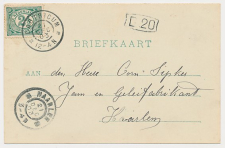 E 20
BRIEFKAART
AAN den Heer Corn: Sipkes
Jam en Geleifabrikant
Haarlem
HAARLEM